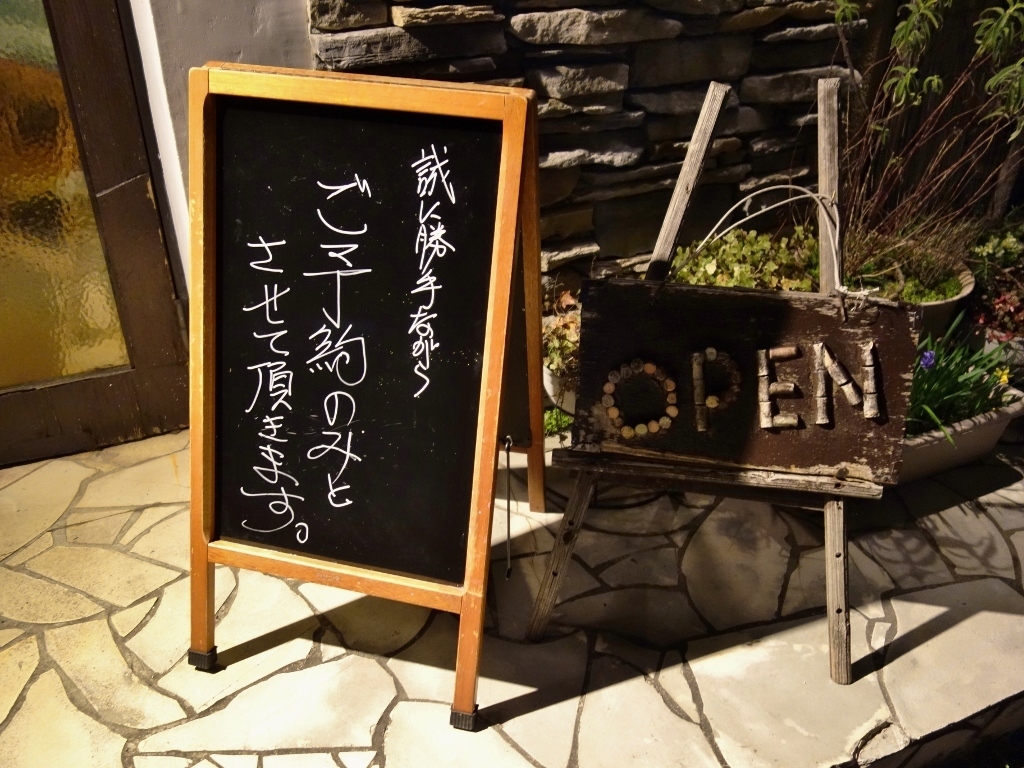 誠に勝手ながら
ご予約のみと
させて頂きます。
OPEN